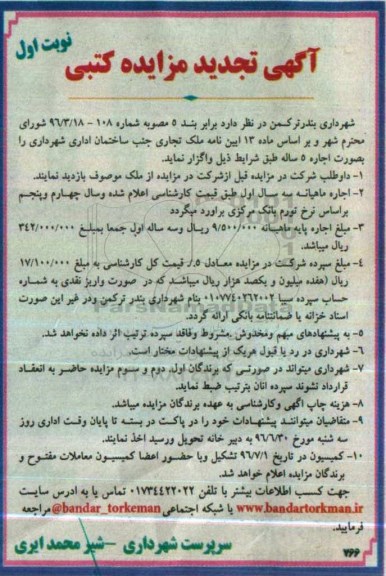 نوبت اول
آگهی تجدید مزایده کتبی
شهرداری بندرترکمن در نظر دارد برابر بند ۵ مصوبه شماره ۱۰۸ - ۹۶/۳/۱۸ شورای
محترم شهر و بر اساس ماده ۱۳ آیین نامه ملک تجاری جنب ساختمان اداری شهرداری را
بصورت اجاره ۵ ساله طبق شرایط ذیل واگزار نماید.
۱- داوطلب شرکت در مزایده قبل ازشرکت در مزایده از ملک موصوف بازدید نمایند.
۲- اجاره ماهیانه سه سال اول طبق قیمت کارشناسی اعلام شده وسال چهارم وپنجم
براساس نرخ تورم بانک مرکزی براورد میگردد
۳- مبلغ اجاره پایه ماهیانه ۹/۵۰۰/۰۰۰ ریال وسه ساله اول جمعا بمبلغ ۳۴۲/۰۰۰/۰۰۰
ریال میباشد.
۴- مبلغ سپرده شرکت در مزایده معادل ۵٪ قیمت کل کارشناسی به مبلغ ۱۷/۱۰۰/۰۰۰
ریال (هفده میلیون و یکصد هزار ریال میباشد که در صورت واریز نقدی به شماره
حساب سپرده سیبا ۰۱۰۷۷۴۰۲۶۲۰۰۲ بنام شهرداری بندر ترکمن ودر غیر این صورت
اسناد خزانه یا ضمانتنامه بانکی ارائه گردد.
۵- به پیشنهادهای مبهم ومخدوش,مشروط وفاقد سپرده ترتیب اثر داده نخواهد شد.
۶- شهرداری در رد یا قبول هریک از پیشنهادات مختار است.
۷- شهرداری میتواند در صورتی که برندگان اول, دوم و سوم مزایده حاضر به انعقاد
قرارداد نشوند سپرده انان بترتیب ضبط نماید.
۸- هزینه چاپ اگهی وکارشناسی به عهده برندگان مزایده میباشد.
۹- متقاضیان میتوانند پیشنهادات خود را در پاکت در بسته تا پایان وقت اداری روز
سه شنبه مورخ ۹۶/۶/۳۰ به دبیر خانه تحویل ورسید اخذ نمایند.
۱۰- کمیسیون در تاریخ ۹۶/۷/۱ تشکیل وبا حضور اعضا کمیسیون معاملات مفتوح و
برندگان مزایده اعلام خواهد شد.
جهت کسب اطلاعات بیشتر با تلفن ۰۱۷۳۴۴۲۲۰۲۲ تماس یا به ادرس سایت
www.bandartorkman.ir یا شبکه اجتماعی @bandar_torkeman مراجعه
فرمایید.
سرپرست شهرداری – شیر محمد ایری
۷۶۶